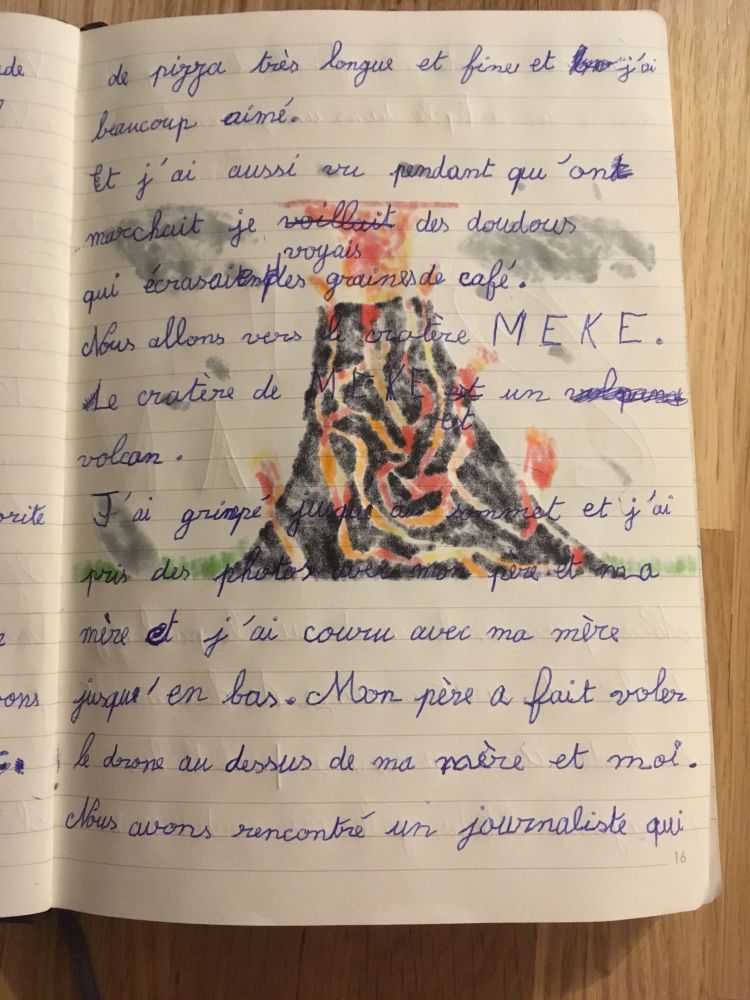 de pizza très longue et fine et j'ai
beaucoup aimé.
Et j'ai aussi vu pendant qu'on
marchait je voillait des doudous
voyais
qui écrasaient des graines de café.
Nous allons vers le cratère MEKE.
Le cratère de MEKE est un
est
volcan.
J'ai grimpé jusqu'au sommet et j'ai
pris des photos avec mon père et ma
mère et j'ai couru avec ma mère
jusqu'en bas. Mon père a fait voler
le drone au dessus de ma mère et moi.
Nous avons rencontré un journaliste qui
16
ade
orite
ons